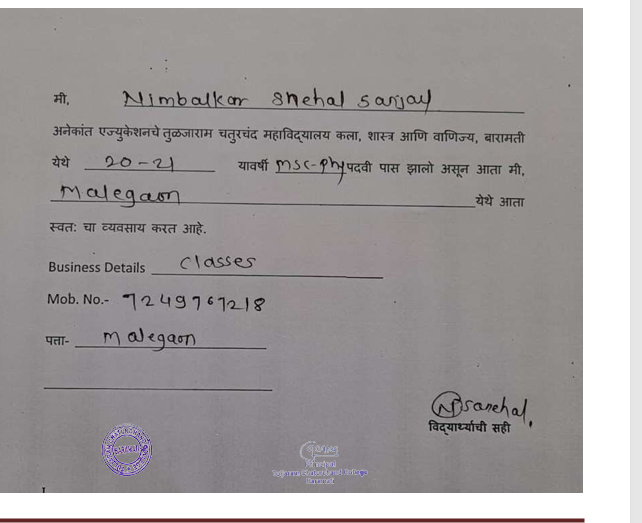 मी, Nimbalkar Snehal Sanjay
अनेकांत एज्युकेशनचे तुळजाराम चतुरचंद महाविद्यालय कला, शास्त्र आणि वाणिज्य, बारामती
येथे 20-21 यावर्षी msc-phy पदवी पास झालो असून आता मी,
Malegaon येथे आता
स्वत: चा व्यवसाय करत आहे.
Business Details classes
Mob. No.- 7249767218
पत्ता- malegaon
विद्यार्थ्याची सही
Principal
Tuljaram Chaturchand College
Baramati